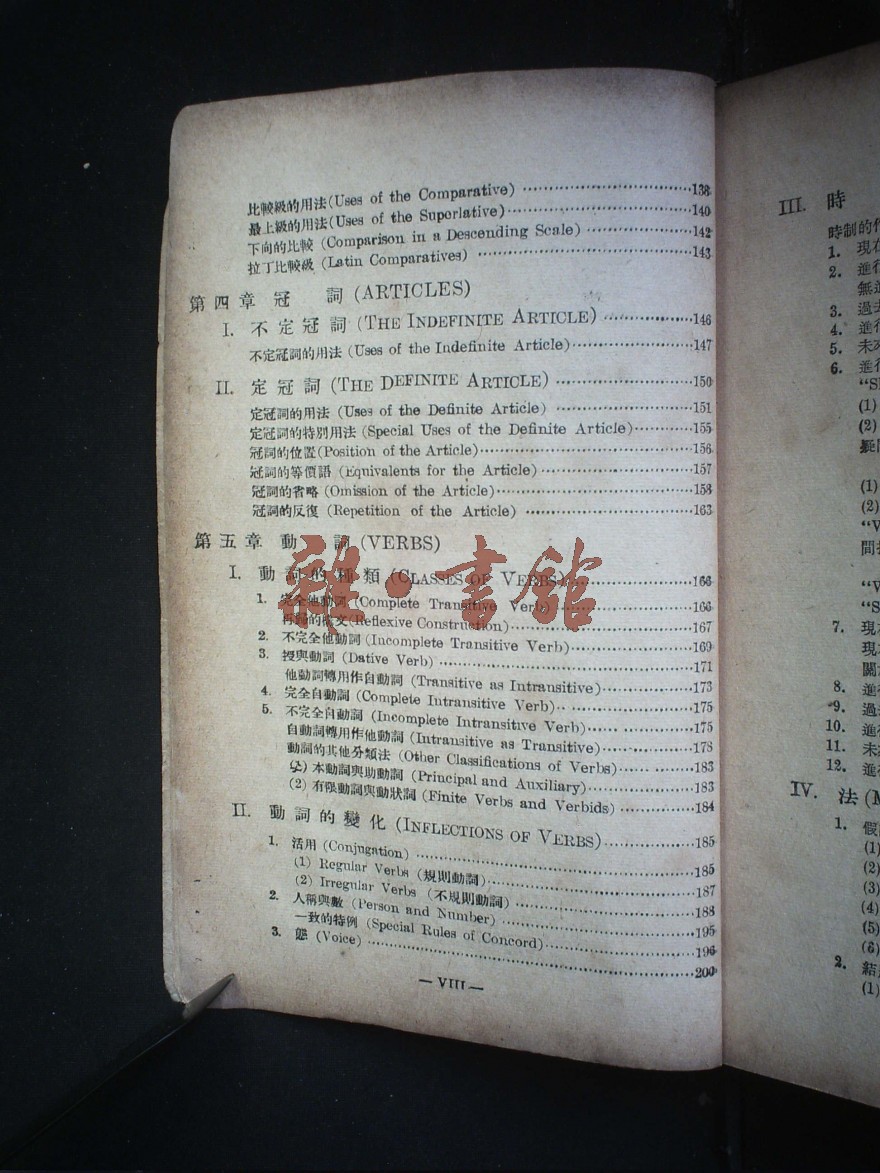 比較級的用法(Uses of the Comparative) ……138
最上級的用法(Uses of the Superlative)……140
下向的比較 (Comparison in a Descending Scale) ……142
拉丁比較級 (Latin Comparatives) ……143
第四章 冠 詞 (ARTICLES)
I. 不定冠詞 (THE INDEFINITE ARTICLE) ……146
不定冠詞的用法 (Uses of the Indefinite Article)……147
II. 定冠詞 (THE DEFINITE ARTICLE) ……150
定冠詞的用法 (Uses of the Definite Article) ……151
定冠詞的特別用法 (Special Uses of the Definite Article)……155
冠詞的位置(Position of the Article)……156
冠詞的等價語 (Equivalents for the Article)……157
冠詞的省略 (Omission of the Article)……158
冠詞的反復 (Repetition of the Article) ……163
第五章 動 詞 (VERBS)
I. 動詞的種類 (CLASSES OF VERBS)……166
1. 完全他動詞 (Complete Transitive Verb) ……166
再歸的構文(Reflexive Construction)……167
2. 不完全他動詞 (Incomplete Transitive Verb)……169
3. 授與動詞 (Dative Verb) ……171
他動詞轉用作自動詞 (Transitive as Intransitive)……173
4. 完全自動詞 (Complete Intransitive Verb)……175
5. 不完全自動詞 (Incomplete Intransitive Verb)……175
自動詞轉用作他動詞 (Intransitive as Transitive)……178
動詞的其他分類法 (Other Classifications of Verbs)……183
(1) 本動詞與助動詞 (Principal and Auxiliary)……183
(2) 有限動詞與動狀詞 (Finite Verbs and Verbids)……184
II. 動詞的變化 (INFLECTIONS OF VERBS)……185
1. 活用 (Conjugation) ……185
(1) Regular Verbs (規則動詞)……187
(2) Irregular Verbs (不規則動詞) ……188
2. 人稱與數 (Person and Number) ……195
一致的特例 (Special Rules of Concord)……196
3. 態 (Voice) ……200
— VIII —
雜·書館
III. 時
時制的
1. 現在
2. 進行
無進
3. 過去
4. 進行
5. 未來
6. 進行
(1)
(2)
疑
(1)
(2)
間接
7. 現
現在
關
8. 進行
9. 過去
10. 進行
11. 未來
12. 進行
IV. 法
1. 假
(1)
(2)
(3)
(4)
(5)
(6)
2. 結
(1)